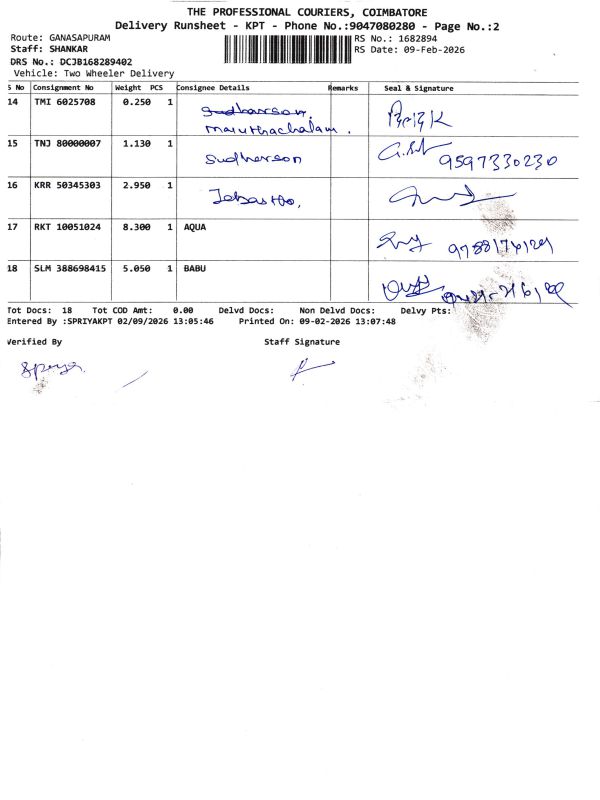 THE PROFESSIONAL COURIERS, COIMBATORE
Delivery Runsheet - KPT - Phone No.:9047080280 - Page No.:2
Route: GANASAPURAM RS No.: 1682894
Staff: SHANKAR RS Date: 09-Feb-2026
DRS No.: DCJB168289402
Vehicle: Two Wheeler Delivery
S No Consignment No Weight PCS Consignee Details Remarks Seal & Signature
14 TMI 6025708 0.250 1 Sudharson.
Maruthachalam.
15 TNJ 80000007 1.130 1 Sudherson 9597330230
16 KRR 50345303 2.950 1
17 RKT 10051024 8.300 1 AQUA
18 SLM 388698415 5.050 1 BABU
Tot Docs: 18 Tot COD Amt: 0.00 Delvd Docs: Non Delvd Docs: Delvy Pts:
Entered By :SPRIYAKPT 02/09/2026 13:05:46 Printed On: 09-02-2026 13:07:48
Verified By Staff Signature